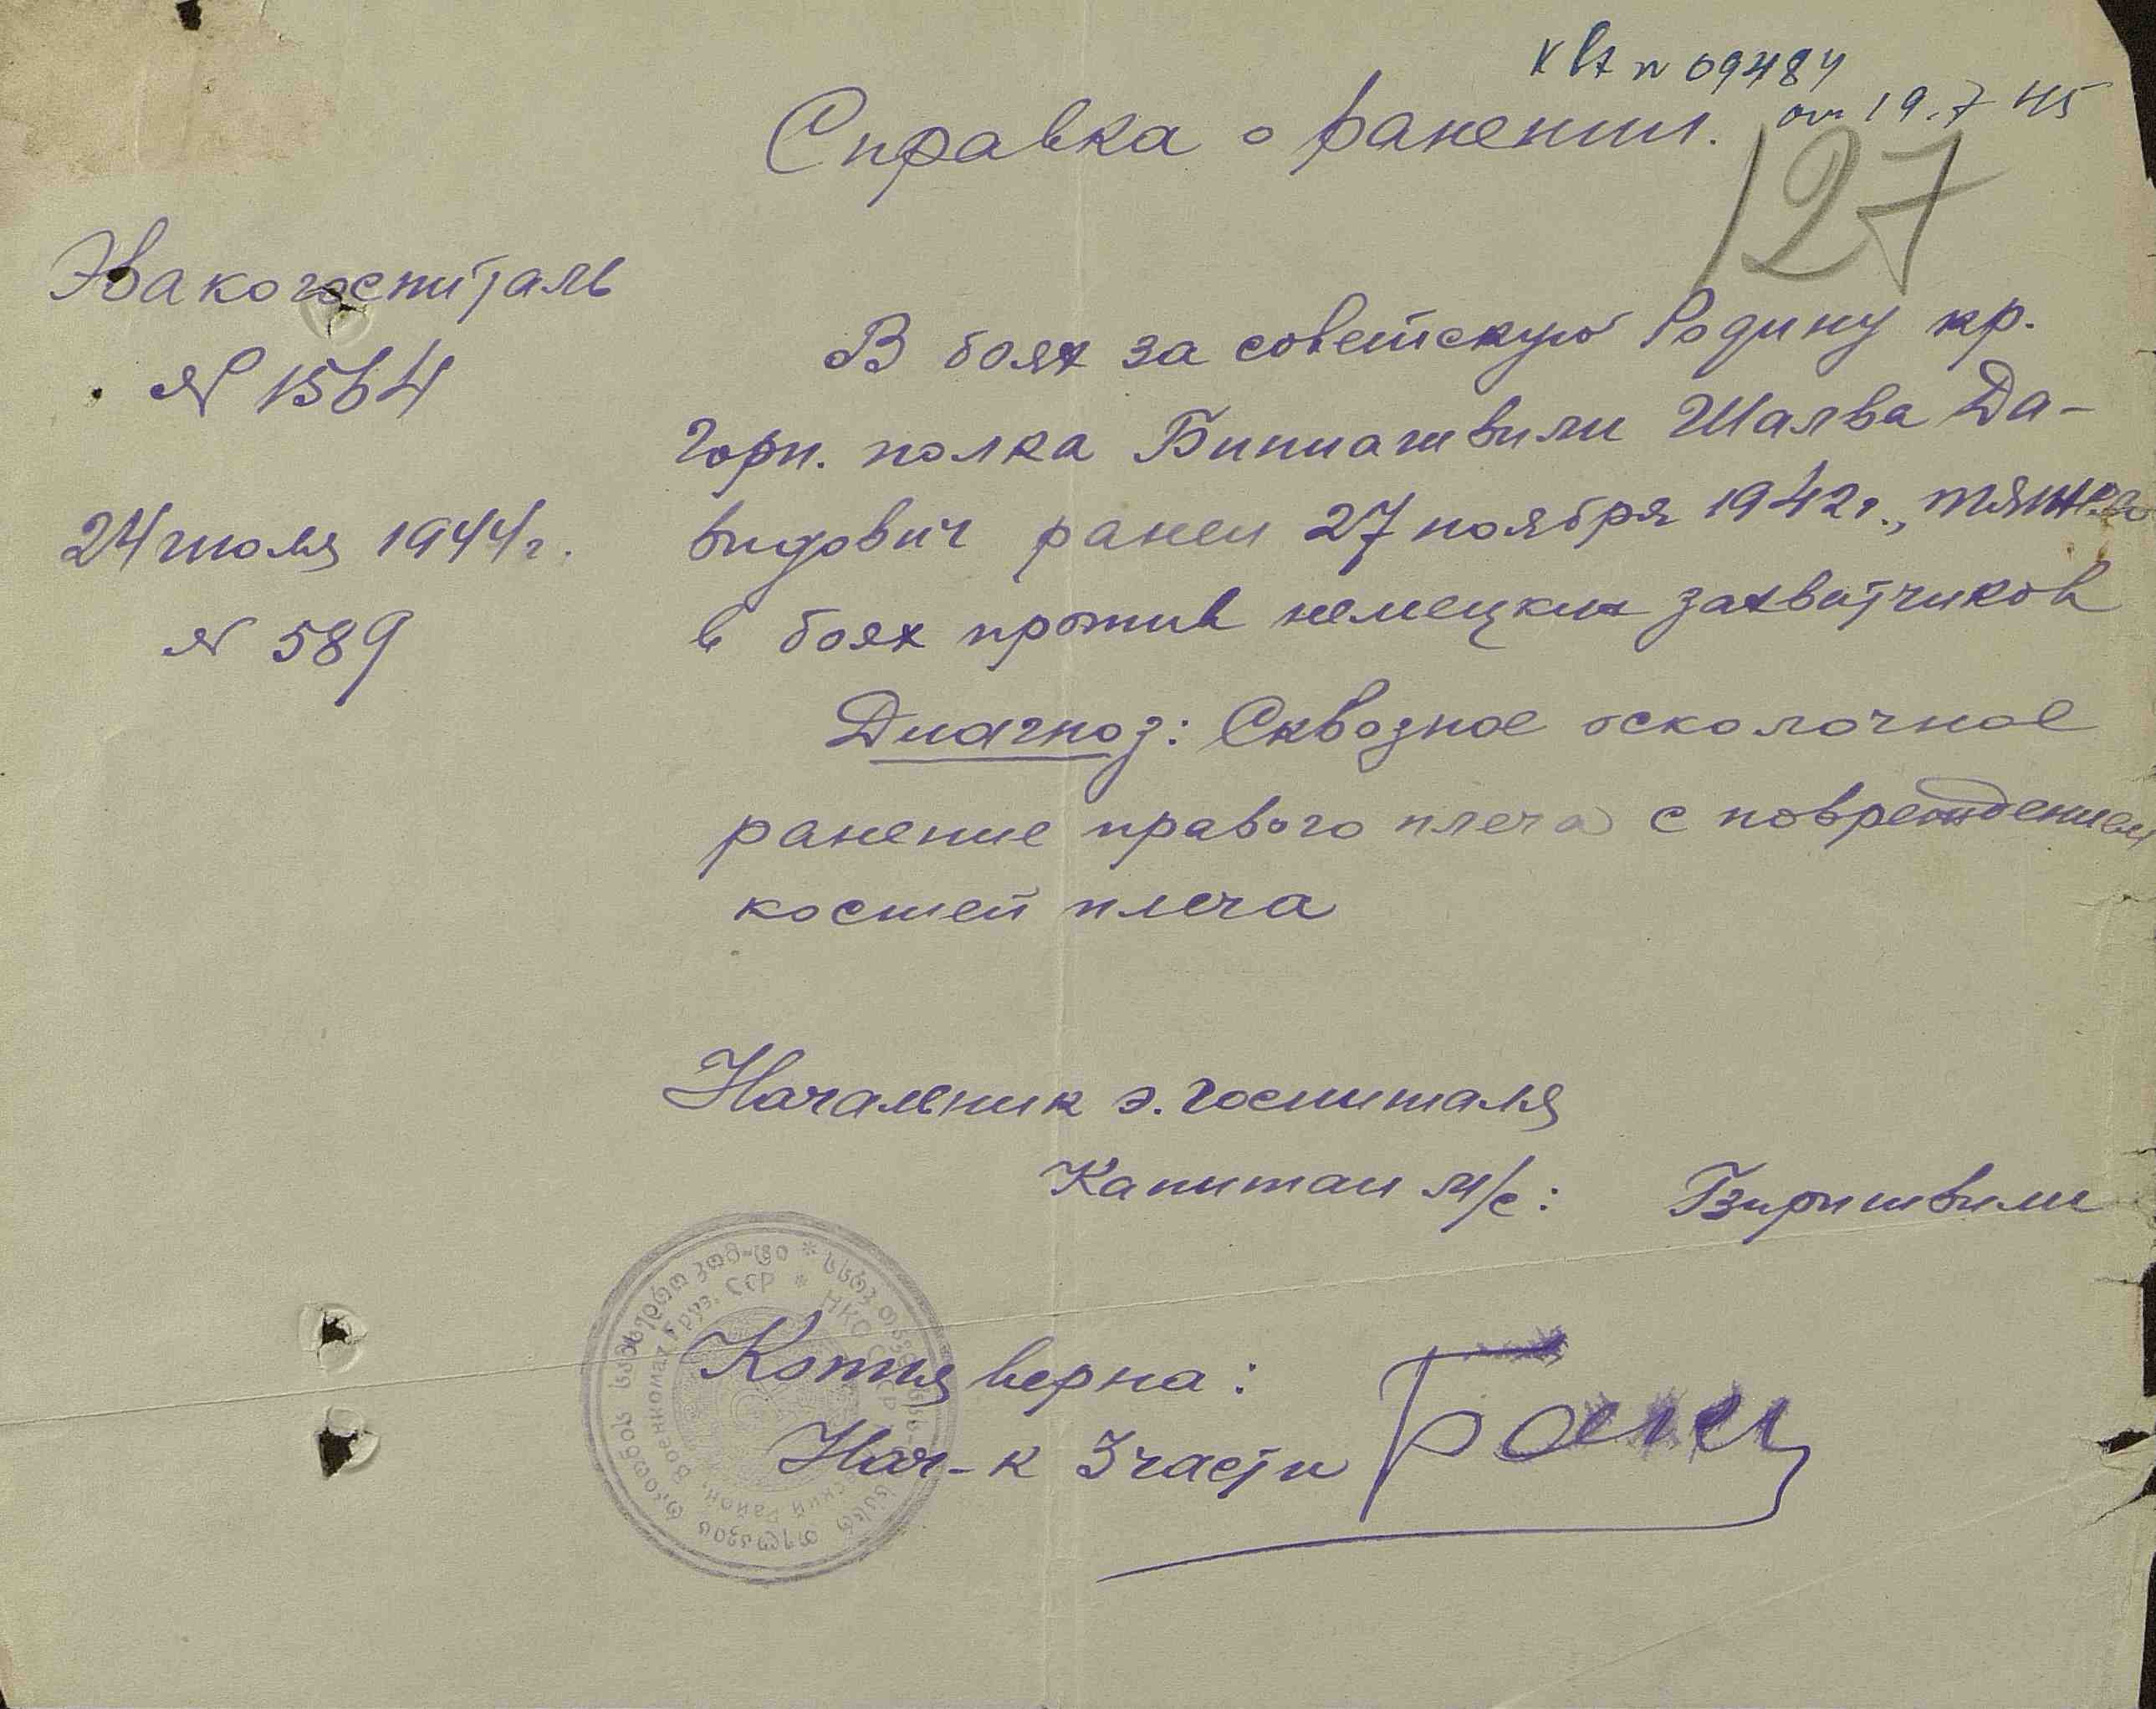 к вх № 09484
от 19.7 45
Справка о ранении.
127
Эвакогоспиталь
№ 1564
24 июля 1944 г.
№ 589
В боях за советскую Родину кр.
Горн. полка Бипиашвили Шалва Да-
видович ранен 27 ноября 1942 г., тяжело
в боях против немецких захватчиков
Диагноз: Сквозное осколочное
ранение правого плеча с повреждением
костей плеча
Начальник э. госпиталя
Капитан м/с: Бзиришвили
Копия верна:
Нач-к 3 части
Груз. ССР * НКО